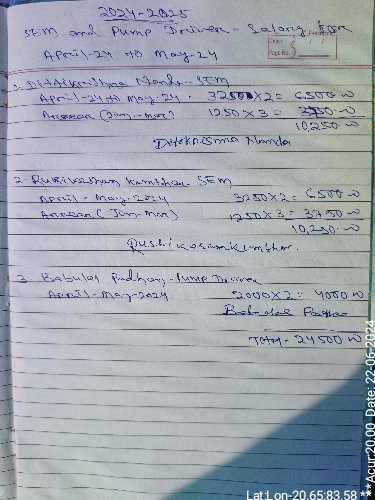 2024-2025
SEM and Pump Driver - Salary For
April-24 to May-24
Date:
Page No.
1. Nanda - SEM
April-24 to May-24 - 3250×2= 6500.00
Arrear (Jan-Mar) 1250×3= 3750.00
10,250.00
Nanda
2- Kumbhar SEM
April - May-2024 3250×2= 6500.00
Arrear (Jan-Mar) 1250×3= 3750.00
10,250.00
Rushikesan Kumbhar
3. Babulal Padhan - Pump Driver
April - May-2024 2000×2= 4000.00
Total - 24500.00
Lat:Lon-20.65:83.58 ***Acur:20.00 Date: 22-06-2024